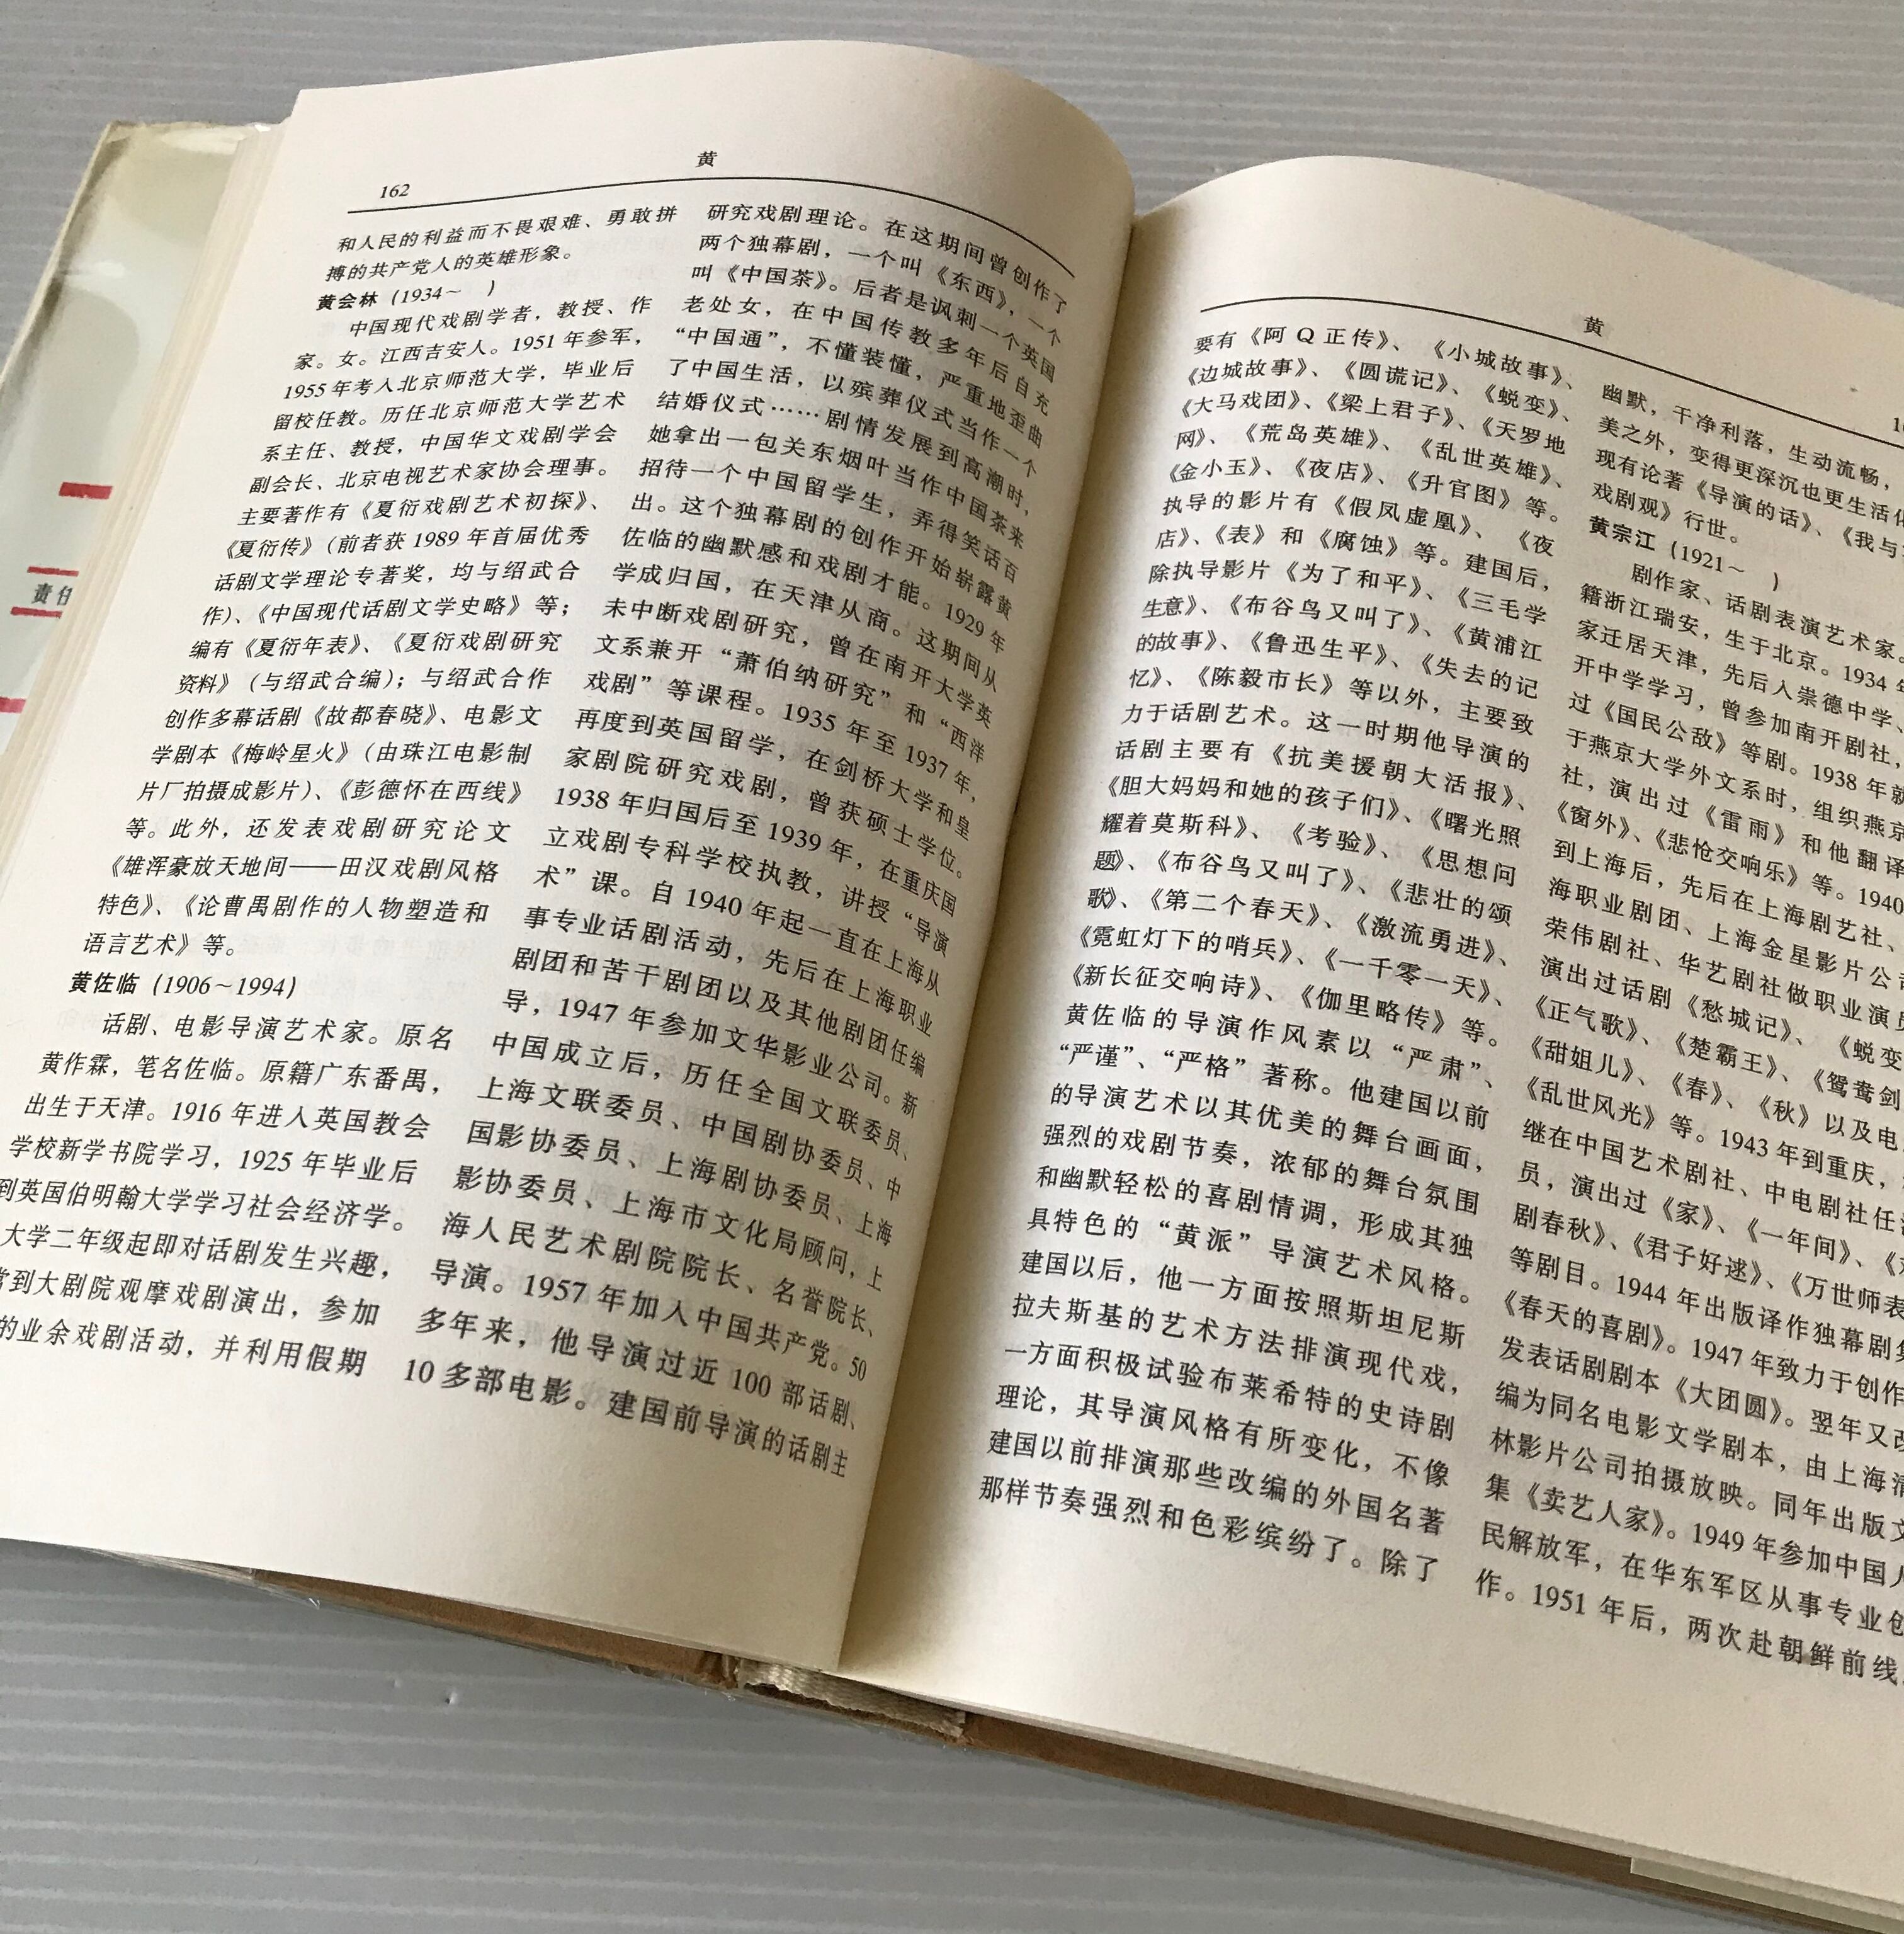 责任
162
黄
和人民的利益而不畏艰难、勇敢拼
搏的共产党人的英雄形象。
黄会林（1934～　）
中国现代戏剧学者，教授、作
家。女。江西吉安人。1951 年参军，
1955 年考入北京师范大学，毕业后
留校任教。历任北京师范大学艺术
系主任、教授，中国华文戏剧学会
副会长、北京电视艺术家协会理事。
主要著作有《夏衍戏剧艺术初探》、
《夏衍传》（前者获 1989 年首届优秀
话剧文学理论专著奖，均与绍武合
作）、《中国现代话剧文学史略》等；
编有《夏衍年表》、《夏衍戏剧研究
资料》（与绍武合编）；与绍武合作
创作多幕话剧《故都春晓》、电影文
学剧本《梅岭星火》（由珠江电影制
片厂拍摄成影片）、《彭德怀在西线》
等。此外，还发表戏剧研究论文
《雄浑豪放天地间——田汉戏剧风格
特色》、《论曹禺剧作的人物塑造和
语言艺术》等。
黄佐临（1906～1994）
话剧、电影导演艺术家。原名
黄作霖，笔名佐临。原籍广东番禺，
出生于天津。1916 年进入英国教会
学校新学书院学习，1925 年毕业后
到英国伯明翰大学学习社会经济学。
大学二年级起即对话剧发生兴趣，
常到大剧院观摩戏剧演出，参加
的业余戏剧活动，并利用假期
研究戏剧理论。在这期间曾创作了
两个独幕剧，一个叫《东西》，一个
叫《中国茶》。后者是讽刺一个英国
老处女，在中国传教多年后自充
“中国通”，不懂装懂，严重地歪曲
了中国生活，以殡葬仪式当作一个
结婚仪式……剧情发展到高潮时，
她拿出一包关东烟叶当作中国茶来
招待一个中国留学生，弄得笑话百
出。这个独幕剧的创作开始崭露黄
佐临的幽默感和戏剧才能。1929 年
学成归国，在天津从商。这期间从
未中断戏剧研究，曾在南开大学英
文系兼开“萧伯纳研究”和“西洋
戏剧”等课程。1935 年至 1937 年，
再度到英国留学，在剑桥大学和皇
家剧院研究戏剧，曾获硕士学位。
1938 年归国后至 1939 年，在重庆国
立戏剧专科学校执教，讲授“导演
术”课。自 1940 年起一直在上海从
事专业话剧活动，先后在上海职业
剧团和苦干剧团以及其他剧团任编
导，1947 年参加文华影业公司。新
中国成立后，历任全国文联委员、
上海文联委员、中国剧协委员、中
国影协委员、上海剧协委员、上海
影协委员、上海市文化局顾问，上
海人民艺术剧院院长、名誉院长、
导演。1957 年加入中国共产党。50
多年来，他导演过近 100 部话剧、
10 多部电影。建国前导演的话剧主
黄
要有《阿 Q 正传》、《小城故事》、
《边城故事》、《圆谎记》、《蜕变》、
《大马戏团》、《梁上君子》、《天罗地
网》、《荒岛英雄》、《乱世英雄》、
《金小玉》、《夜店》、《升官图》等。
执导的影片有《假凤虚凰》、《夜
店》、《表》和《腐蚀》等。建国后，
除执导影片《为了和平》、《三毛学
生意》、《布谷鸟又叫了》、《黄浦江
的故事》、《鲁迅生平》、《失去的记
忆》、《陈毅市长》等以外，主要致
力于话剧艺术。这一时期他导演的
话剧主要有《抗美援朝大活报》、
《胆大妈妈和她的孩子们》、《曙光照
耀着莫斯科》、《考验》、《思想问
题》、《布谷鸟又叫了》、《悲壮的颂
歌》、《第二个春天》、《激流勇进》、
《霓虹灯下的哨兵》、《一千零一天》、
《新长征交响诗》、《伽里略传》等。
黄佐临的导演作风素以“严肃”、
“严谨”、“严格”著称。他建国以前
的导演艺术以其优美的舞台画面，
强烈的戏剧节奏，浓郁的舞台氛围
和幽默轻松的喜剧情调，形成其独
具特色的“黄派”导演艺术风格。
建国以后，他一方面按照斯坦尼斯
拉夫斯基的艺术方法排演现代戏，
一方面积极试验布莱希特的史诗剧
理论，其导演风格有所变化，不像
建国以前排演那些改编的外国名著
那样节奏强烈和色彩缤纷了。除了
幽默，干净利落，生动流畅，
美之外，变得更深沉也更生活化
现有论著《导演的话》、《我与
戏剧观》行世。
黄宗江（1921～　）
剧作家、话剧表演艺术家。
籍浙江瑞安，生于北京。1934 年
家迁居天津，先后入崇德中学、
开中学学习，曾参加南开剧社，
过《国民公敌》等剧。1938 年就
于燕京大学外文系时，组织燕京
社，演出过《雷雨》和他翻译
《窗外》、《悲怆交响乐》等。1940
到上海后，先后在上海剧艺社、
海职业剧团、上海金星影片公司
荣伟剧社、华艺剧社做职业演员
演出过话剧《愁城记》、《蜕变
《正气歌》、《楚霸王》、《鸳鸯剑
《甜姐儿》、《春》、《秋》以及电
《乱世风光》等。1943 年到重庆，
继在中国艺术剧社、中电剧社任
员，演出过《家》、《一年间》、《
剧春秋》、《君子好逑》、《万世师表
等剧目。1944 年出版译作独幕剧集
《春天的喜剧》。1947 年致力于创作
发表话剧剧本《大团圆》。翌年又改
编为同名电影文学剧本，由上海清
林影片公司拍摄放映。同年出版文
集《卖艺人家》。1949 年参加中国人
民解放军，在华东军区从事专业创
作。1951 年后，两次赴朝鲜前线，